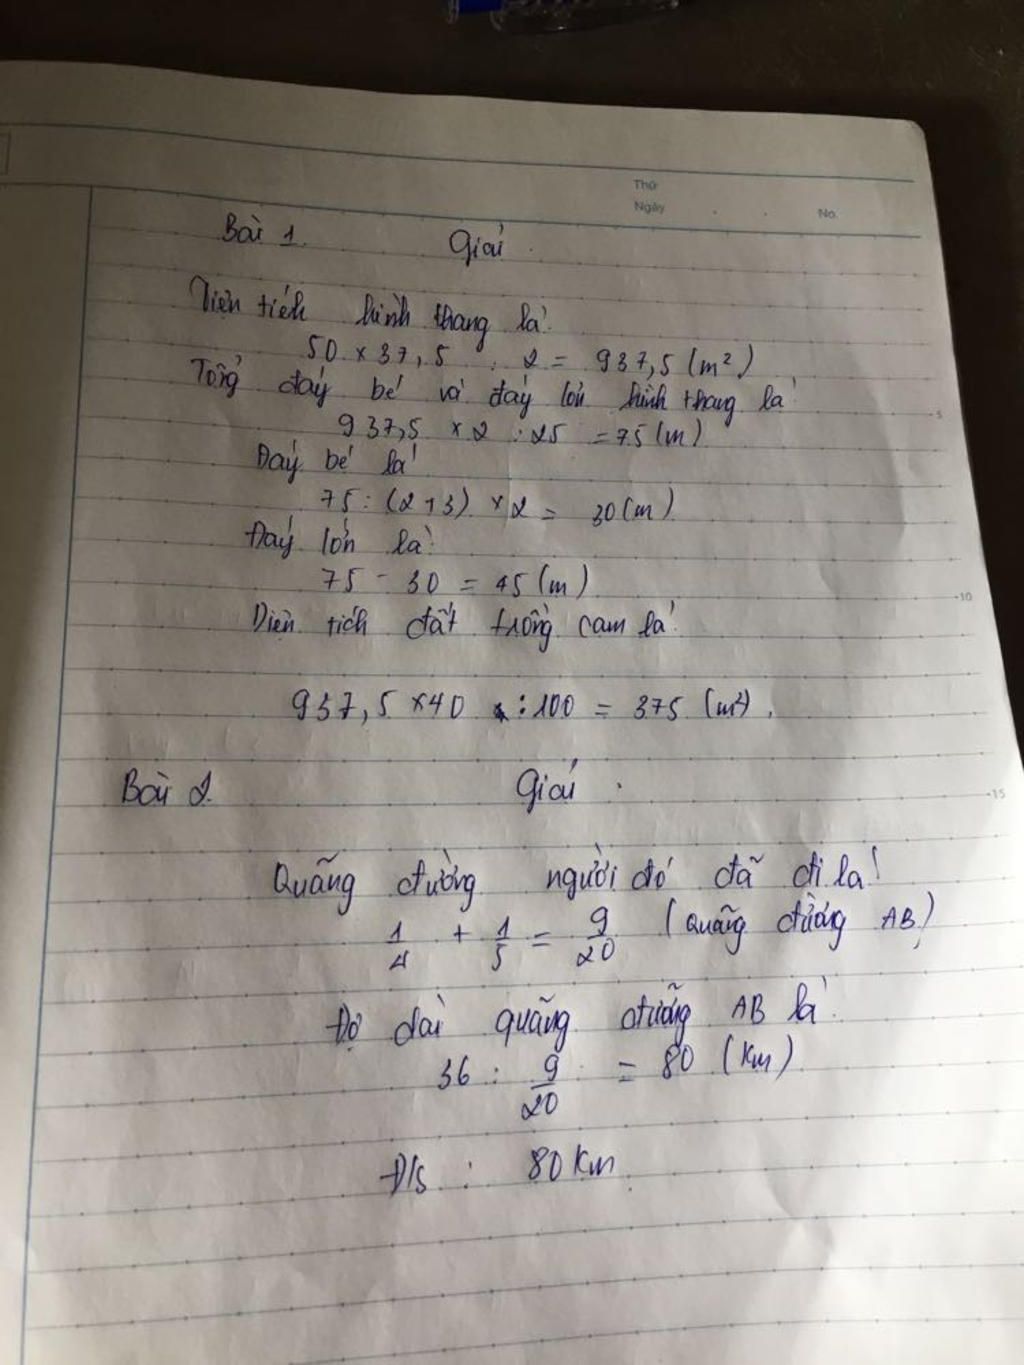 Thứ
Ngày . . No.
Bài 1. Giải.
Diện tích hình thang là:
50 x 37,5 : 2 = 937,5 (m²)
Tổng đáy bé và đáy lớn hình thang là:
937,5 x 2 : 25 = 75 (m)
Đáy bé là:
75 : (2+3) x 2 = 30 (m)
Đáy lớn là:
75 - 30 = 45 (m)
Diện tích đất trồng cam là:
937,5 x 40 : 100 = 375 (m²).
Bài 2. Giải.
Quãng đường người đó đã đi là:
1/4 + 1/5 = 9/20 (quãng đường AB)
Độ dài quãng đường AB là:
36 : 9/20 = 80 (Km)
Đ/S : 80 Km.
5
10
15